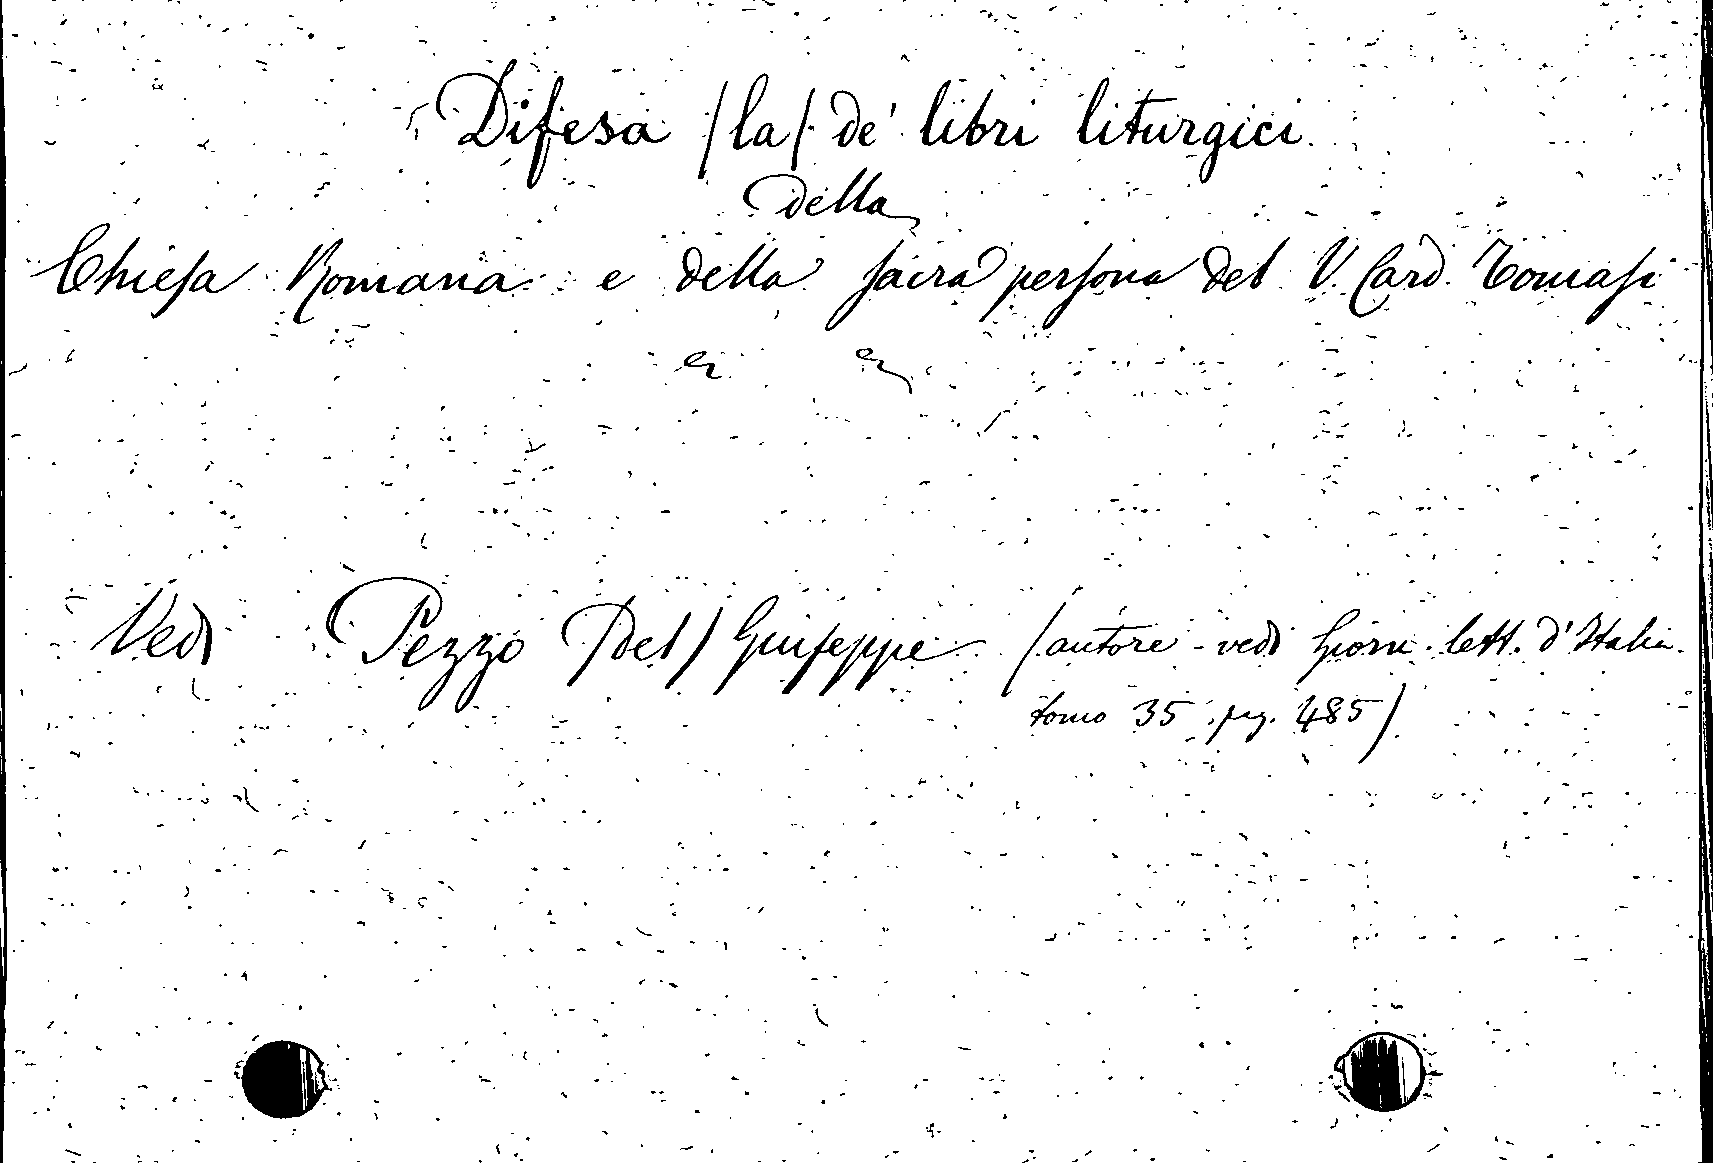 Difesa /la/ de' libri liturgici
della
Chiesa Romana e della sacra persona del V. Card. Tomasi
Vedi Pezzo (Del) Giuseppe (autore - vedi Giorn. lett. d'Italia.
tomo 35 pag. 485)